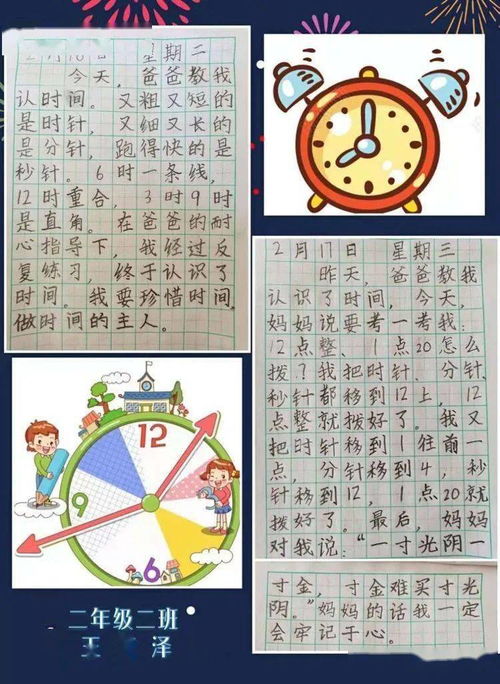 2月16日 星期二
今天，爸爸教我
认时间。又粗又短的
是时针，又细又长的
是分针，跑得快的是
秒针。6时一条线，
12时重合，3时9时
是直角。在爸爸的耐
心指导下，我经过反
复练习，终于认识了
时间。我要珍惜时间，
做时间的主人。
12
9
6
二年级二班
王 泽
2月17日 星期三
昨天，爸爸教我
认识了时间，今天，
妈妈说要考一考我：
12点整、1点20怎么
拨？我把时针、分针、
秒针都移到12上，12
点整就拨好了。我又
把时针移到1往前一
点，分针移到4，秒
针移到12，1点20就
拨好了。最后，妈妈
对我说：“一寸光阴一
寸金，寸金难买寸光
阴。”妈妈的话我一定
会牢记于心。